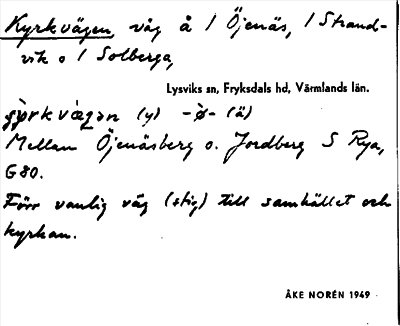 Kyrkvägen, väg å 1 Öjenäs, 1 Strand-
vik o 1 Solberga,
Lysviks sn, Fryksdals hd, Värmlands län.
(y) -ø̀- (ä)
Mellan Öjenäsberg o. Jordberg S Rya,
G80.
Förr vanlig väg (stig) till samhället och
kyrkan.
ÅKE NORÉN 1949